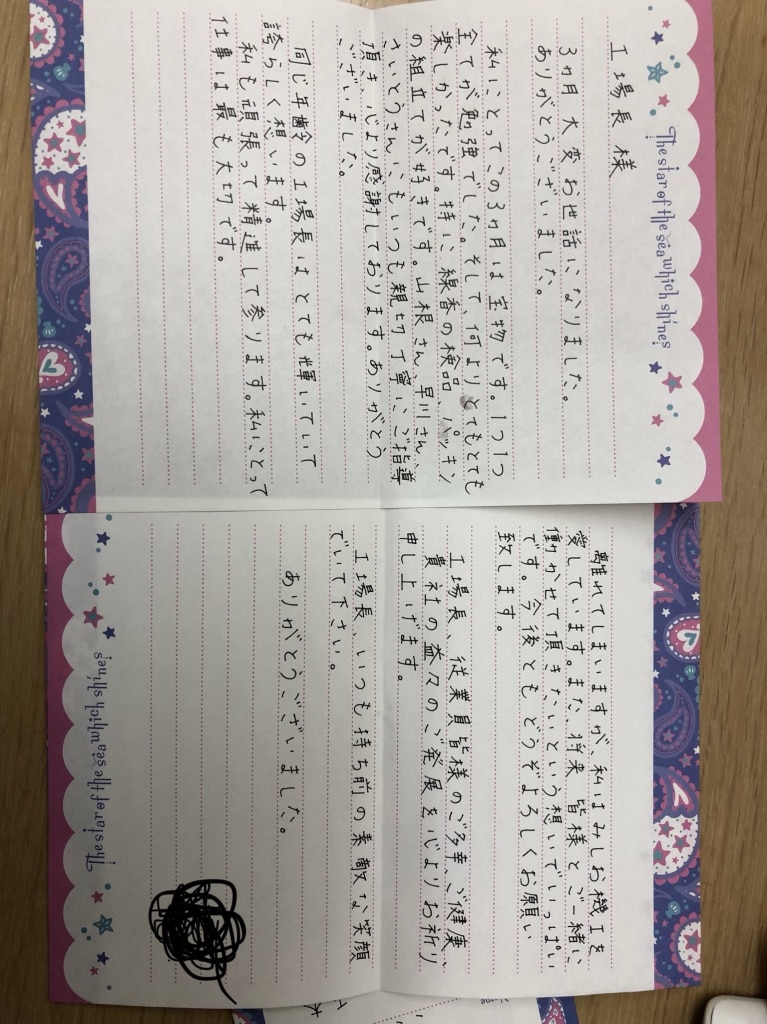 The star of the sea which shines
工場長 様
3ヵ月 大変お世話になりました。
ありがとうございました。
私にとってこの3ヵ月は宝物です。1つ1つ
全てが勉強でした。そして、何よりとてもとても
楽しかったです。特に線香の検品、パッキン
の組立てが好きです。山根さん、早川さん、
さいとうさんにもいつも親切丁寧にご指導
頂き、心より感謝しております。ありがとう
ございました。
同じ年齢の工場長はとても輝いていて
誇らしく想います。
私も頑張って精進して参ります。私にとって
仕事は最も大切です。
離れてしまいますが、私はみしお機工を
愛しています。また、将来 皆様とご一緒に
働かせて頂きたいという想いでいっぱい
です。今後ともどうぞよろしくお願い
致します。
工場長、従業員皆様のご多幸、ご健康、
貴社の益々のご発展を心よりお祈り
申し上げます。
工場長、いつも持ち前の素敵な笑顔
でいて下さい。
ありがとうございました。
The star of the sea which shines